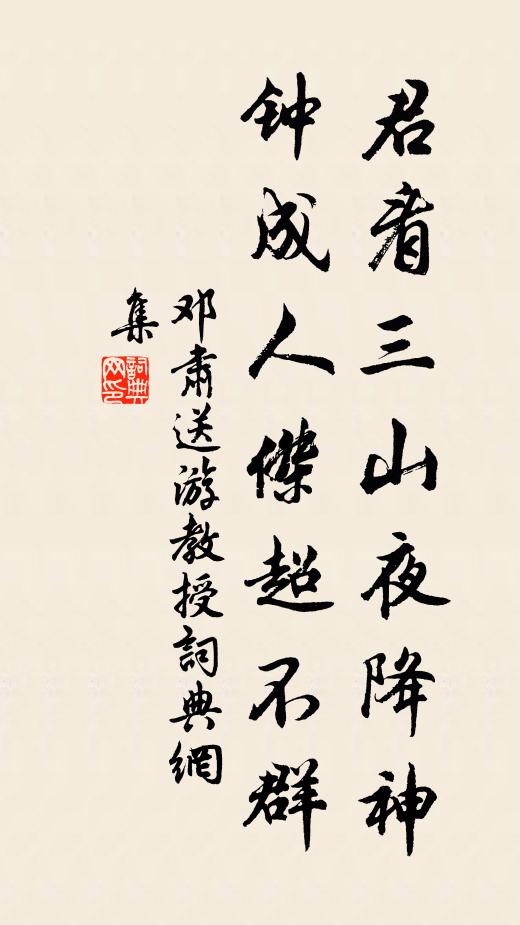 君看三山夜降神
钟成人傑超不群
邓肃送游教授詞典網
集
詞典网印